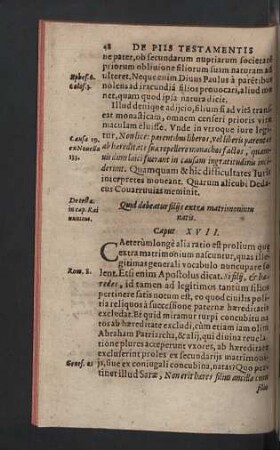 48 DE PIIS TESTAMENTIS
ne pater, ob secundarum nuptiarum societatē
priorum obliuione filiorum suam naturam ad-
Ephes. 6. ulteret. Neque enim Diuus Paulus à parentibus
Coloss. 3. nolens ad iracundiā filios prouocari, aliud mo
net, quam quod ipsa natura dicit.
Illud denique adijcio, filium si ad vitā transf
erat monasticam, omnem censeri prioris vitæ
maculam eluisse. Vnde in veroque iure legi-
Causa 19. tur, Non licet parentibus liberos, vel liberis parenti
ex Nouella ab hæreditate sua repellere monachos factos, quamuis
133. dum laici fuerant in causam ingratitudinis incid
derint. Quamquam & hîc difficultates Iuris
interpretes moueant. Quarum alicubi Deda-
cus Couarruuias meminit.
De testa. Quid debeatur filijs extra matrimonium
in cap. Rai natis.
nutius.
Caput XVII.
CAeterùm longè alia ratio est prolium quæ
extra matrimonium nascuntur, quas ille-
gitimas generali vocabulo nuncupare so
Rom. 8. lent. Etsi enim Apostolus dicat. Si filij, & hæ-
redes, id tamen ad legitimos tantùm filios
pertinere satis notum est, eo quòd ciuilis poli-
tia reliquos à successione paternæ hæreditatis
excludat. Et quid miramur turpi concubitu na
tos ab hæreditate excludi, cùm etiam olim
Abraham Patriarcha, & alij, qui diuina reuela
tione plures acceperunt vxores, ab hæreditate
excluserint proles ex secundarijs matrimo-
Genes. 21 ijs, siue ex coniugali concubina, natas? Quo per
tinet illud Saræ, Non erit hæres filius ancillæ cum
filio